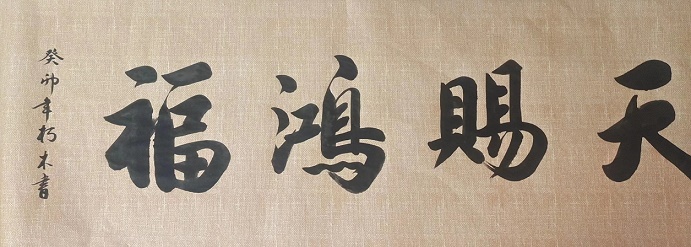 天赐鸿福
癸卯年朽木書